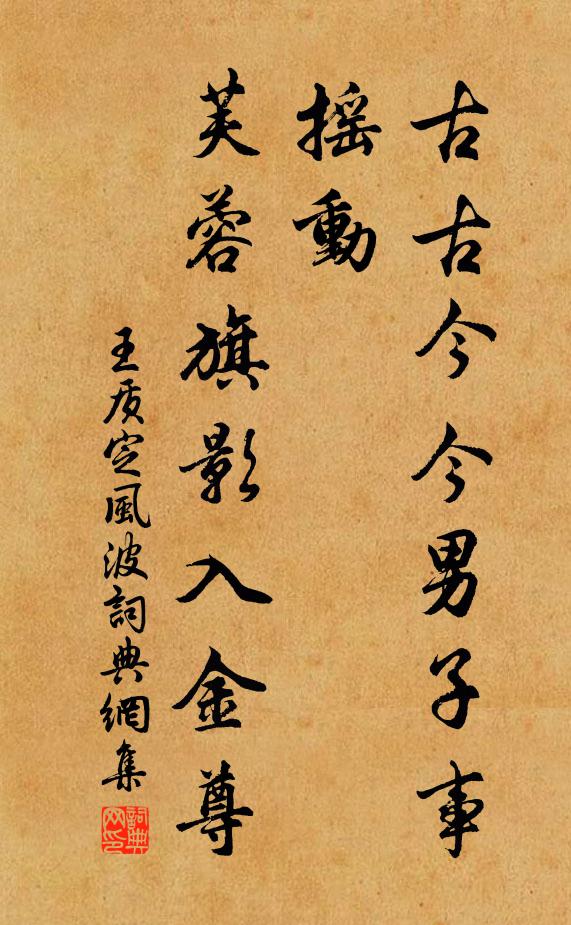 古古今今男子事
摇動
芙蓉旗影入金尊
王质定風波詞典網集
詞典网印